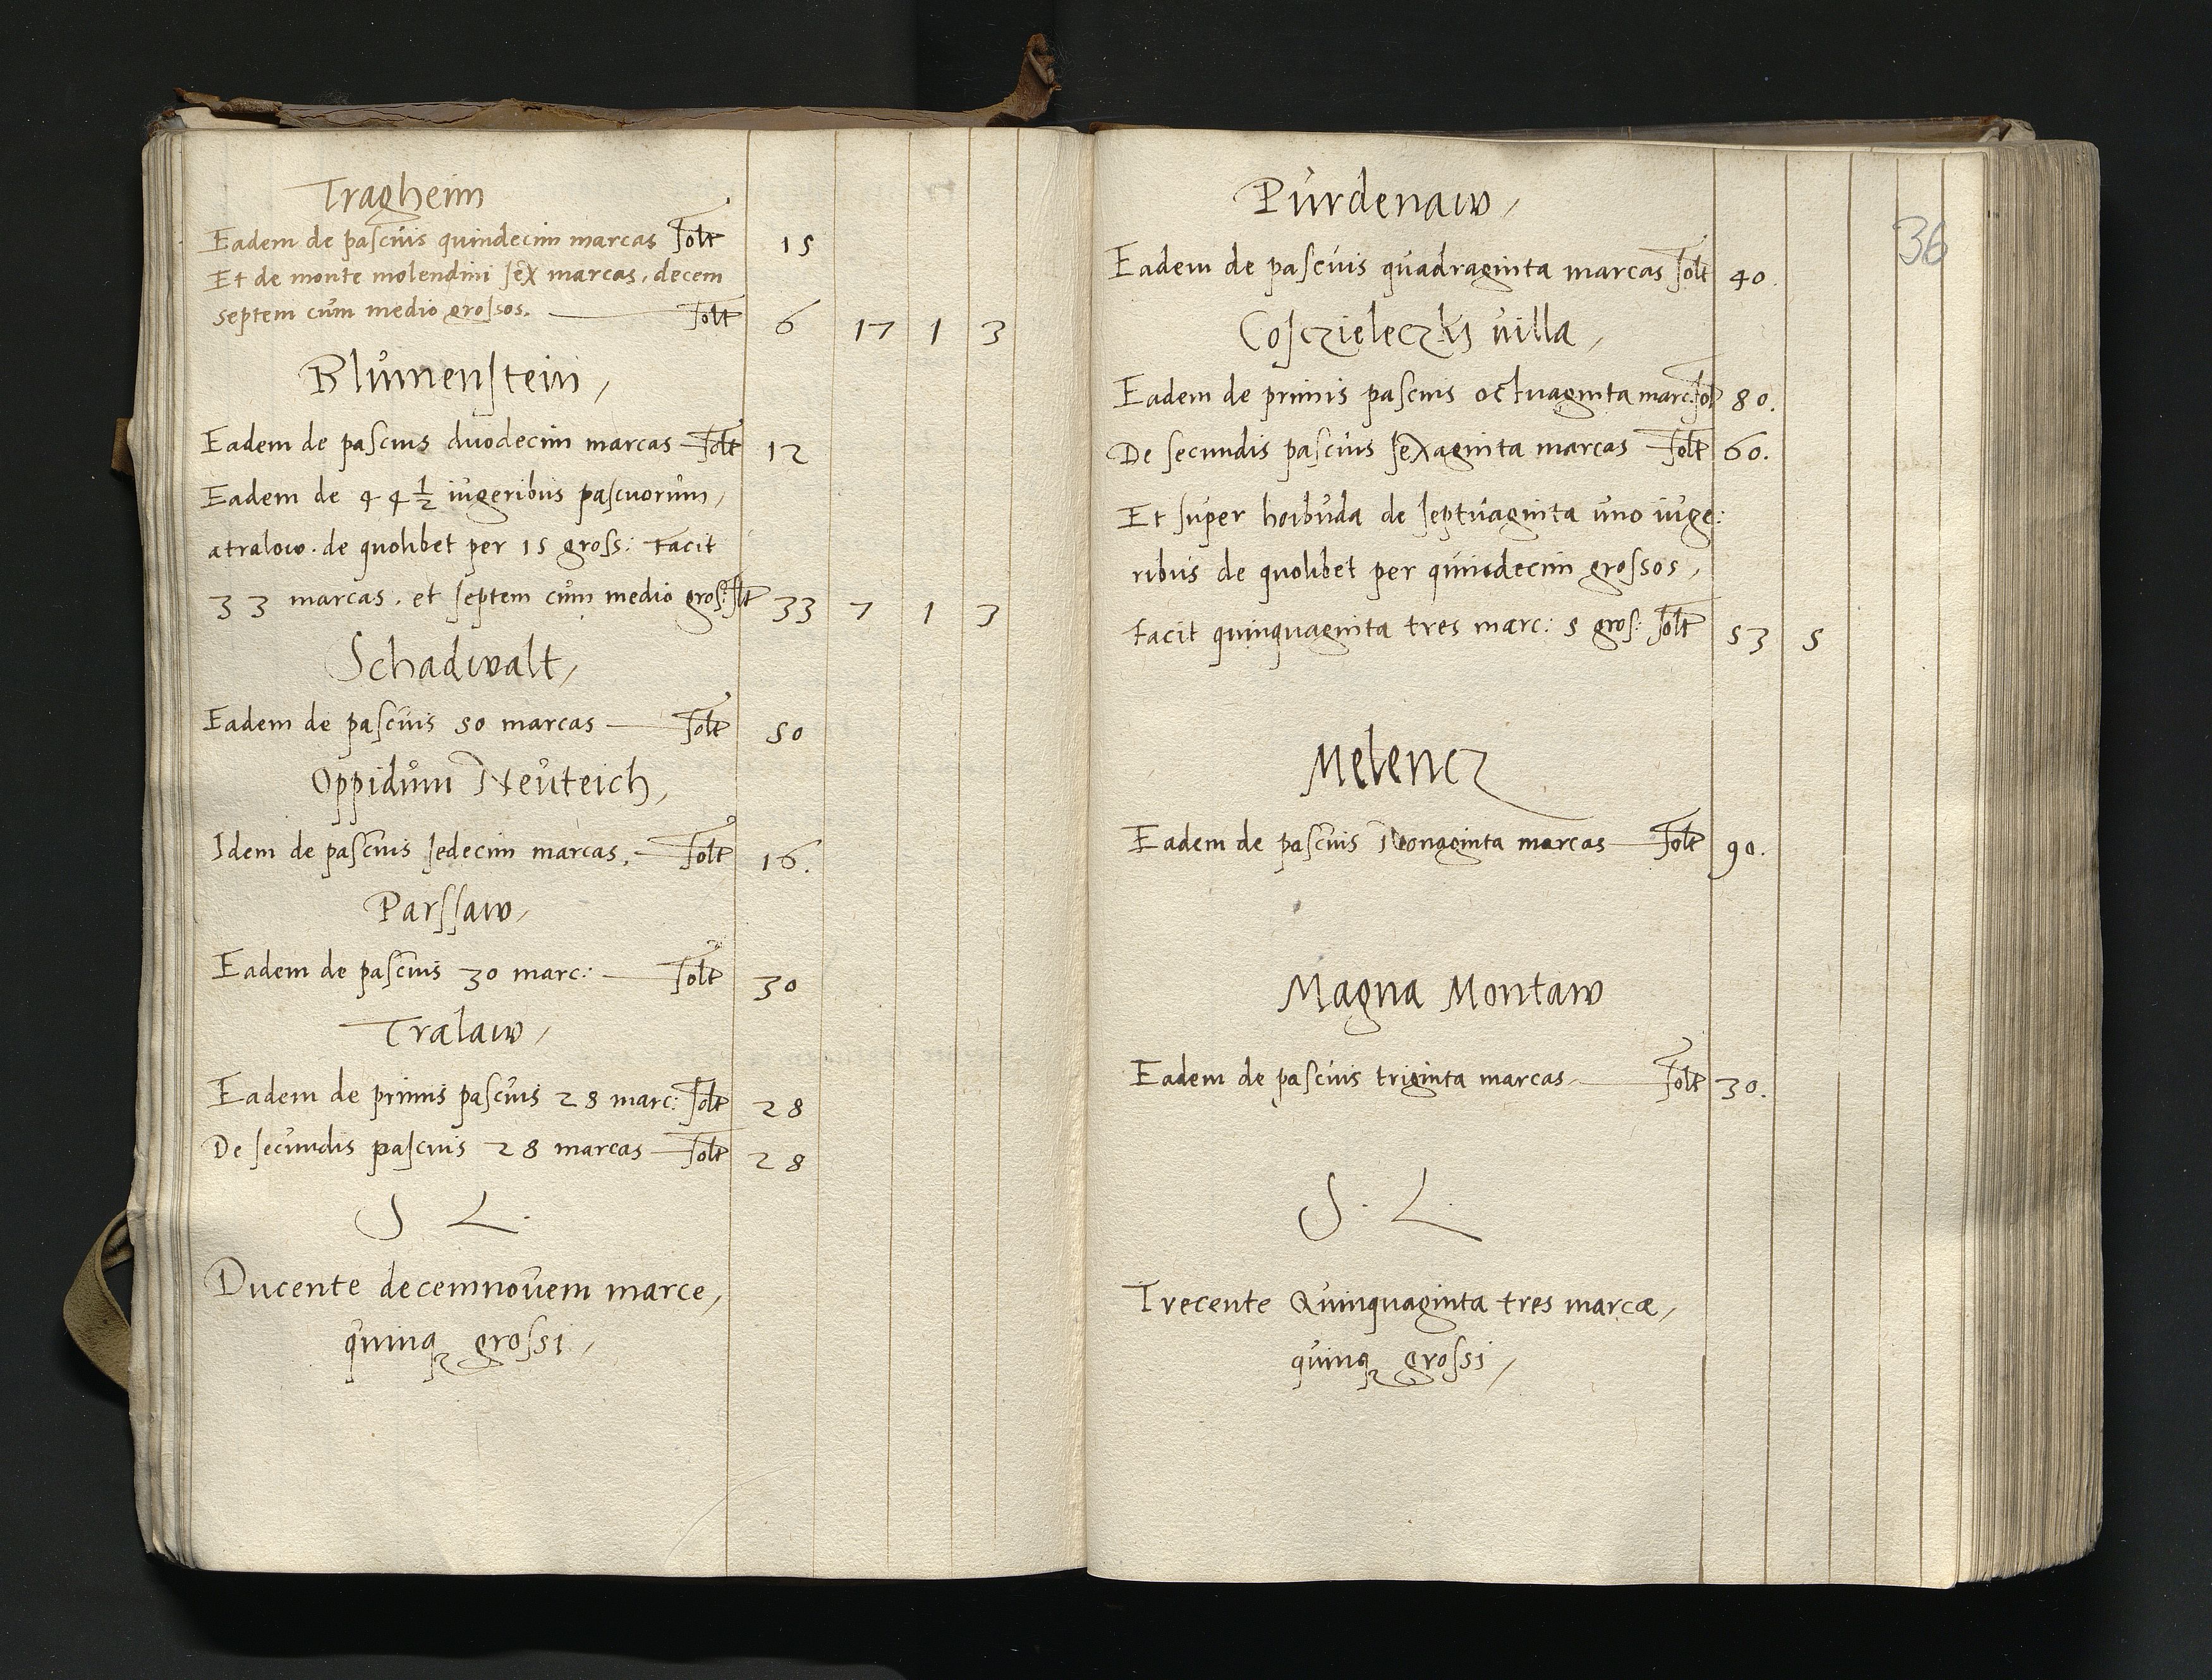 Tragheim
Eadem de pascuis quindecim marcas Solt 15
Et de monte molendini sex marcas, decem
septem cum medio grossos. Solt 6 17 1 3
Blumenstein,
Eadem de pascuis duodecim marcas Solt 12
Eadem de 44 1/2 iugeribus pascuorum,
a tralow. de quolibet per 15 gross: Facit
33 marcas. et septem cum medio gros: slt 33 7 1 3
Schadwalt,
Eadem de pascuis 50 marcas Solt 50
Oppidum Neuteich,
Idem de pascuis sedecim marcas, Solt 16.
Parssaw,
Eadem de pascuis 30 marc: Solt 30
Tralaw,
Eadem de primis pascuis 28 marc: Solt 28
De secundis pascuis 28 marcas Solt 28
S L.
Ducente decemnovem marce,
quinqꝫ grossi,
Purdenaw,
36
Eadem de pascuis quadraginta marcas Solt 40.
Cosczieleczky villa,
Eadem de primis pascuis octuaginta marc: Sol 80.
De secundis pascuis sexaginta marcas Solt 60.
Et super hoibuda de septuaginta uno iuge:
ribus de quolibet per quindecim grossos,
Facit quinquaginta tres marc: 5 gros: Solt 53 5
Melencz
Eadem de pascuis Nonaginta marcas Solt 90.
Magna Montaw
Eadem de pascuis triginta marcas Solt 30.
S. L.
Trecente Quinquaginta tres marcæ,
quinqꝫ grossi,